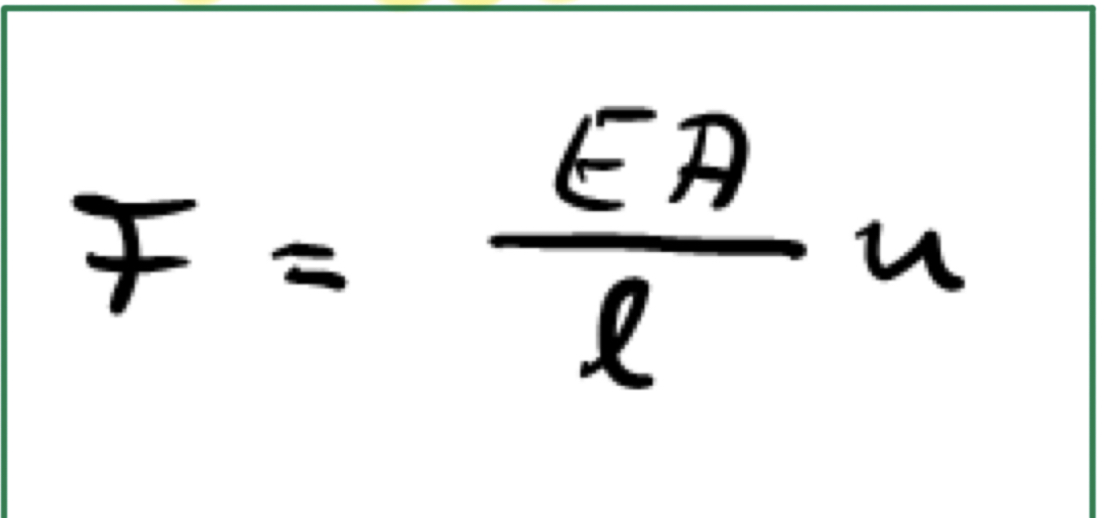 F = \frac{EA}{l} u